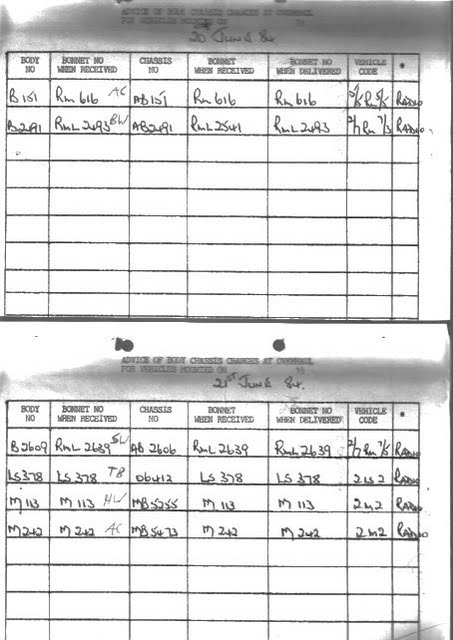 ADVICE OF BODY CHASSIS CHANGES AT OVERHAUL
FOR VEHICLES MOUNTED ON TO
20 June 84
BODY NO BONNET NO WHEN RECEIVED CHASSIS NO BONNET WHEN RECEIVED BONNET NO WHEN DELIVERED VEHICLE CODE *
B151 Rm 616 AC AB151 Rm 616 Rm 616 5/5 Rm 5/5 RADIO
B2491 RmL 2493 BW AB2491 RmL 2541 RmL 2493 2/7 Rm 7/3 RADIO
ADVICE OF BODY CHASSIS CHANGES AT OVERHAUL
FOR VEHICLES MOUNTED ON TO
21ST June 84.
BODY NO BONNET NO WHEN RECEIVED CHASSIS NO BONNET WHEN RECEIVED BONNET NO WHEN DELIVERED VEHICLE CODE *
B2609 RmL 2639 SW AB 2606 RmL 2639 RmL 2639 2/7 Rm 7/5 RADIO
LS378 LS 378 TB 06412 LS 378 LS 378 2 LS 2 RADIO
M 113 M 113 HW MB5255 M 113 M 113 2 m 2 RADIO
M 242 M 242 AC MB5473 M 242 M 242 2 m 2 RADIO